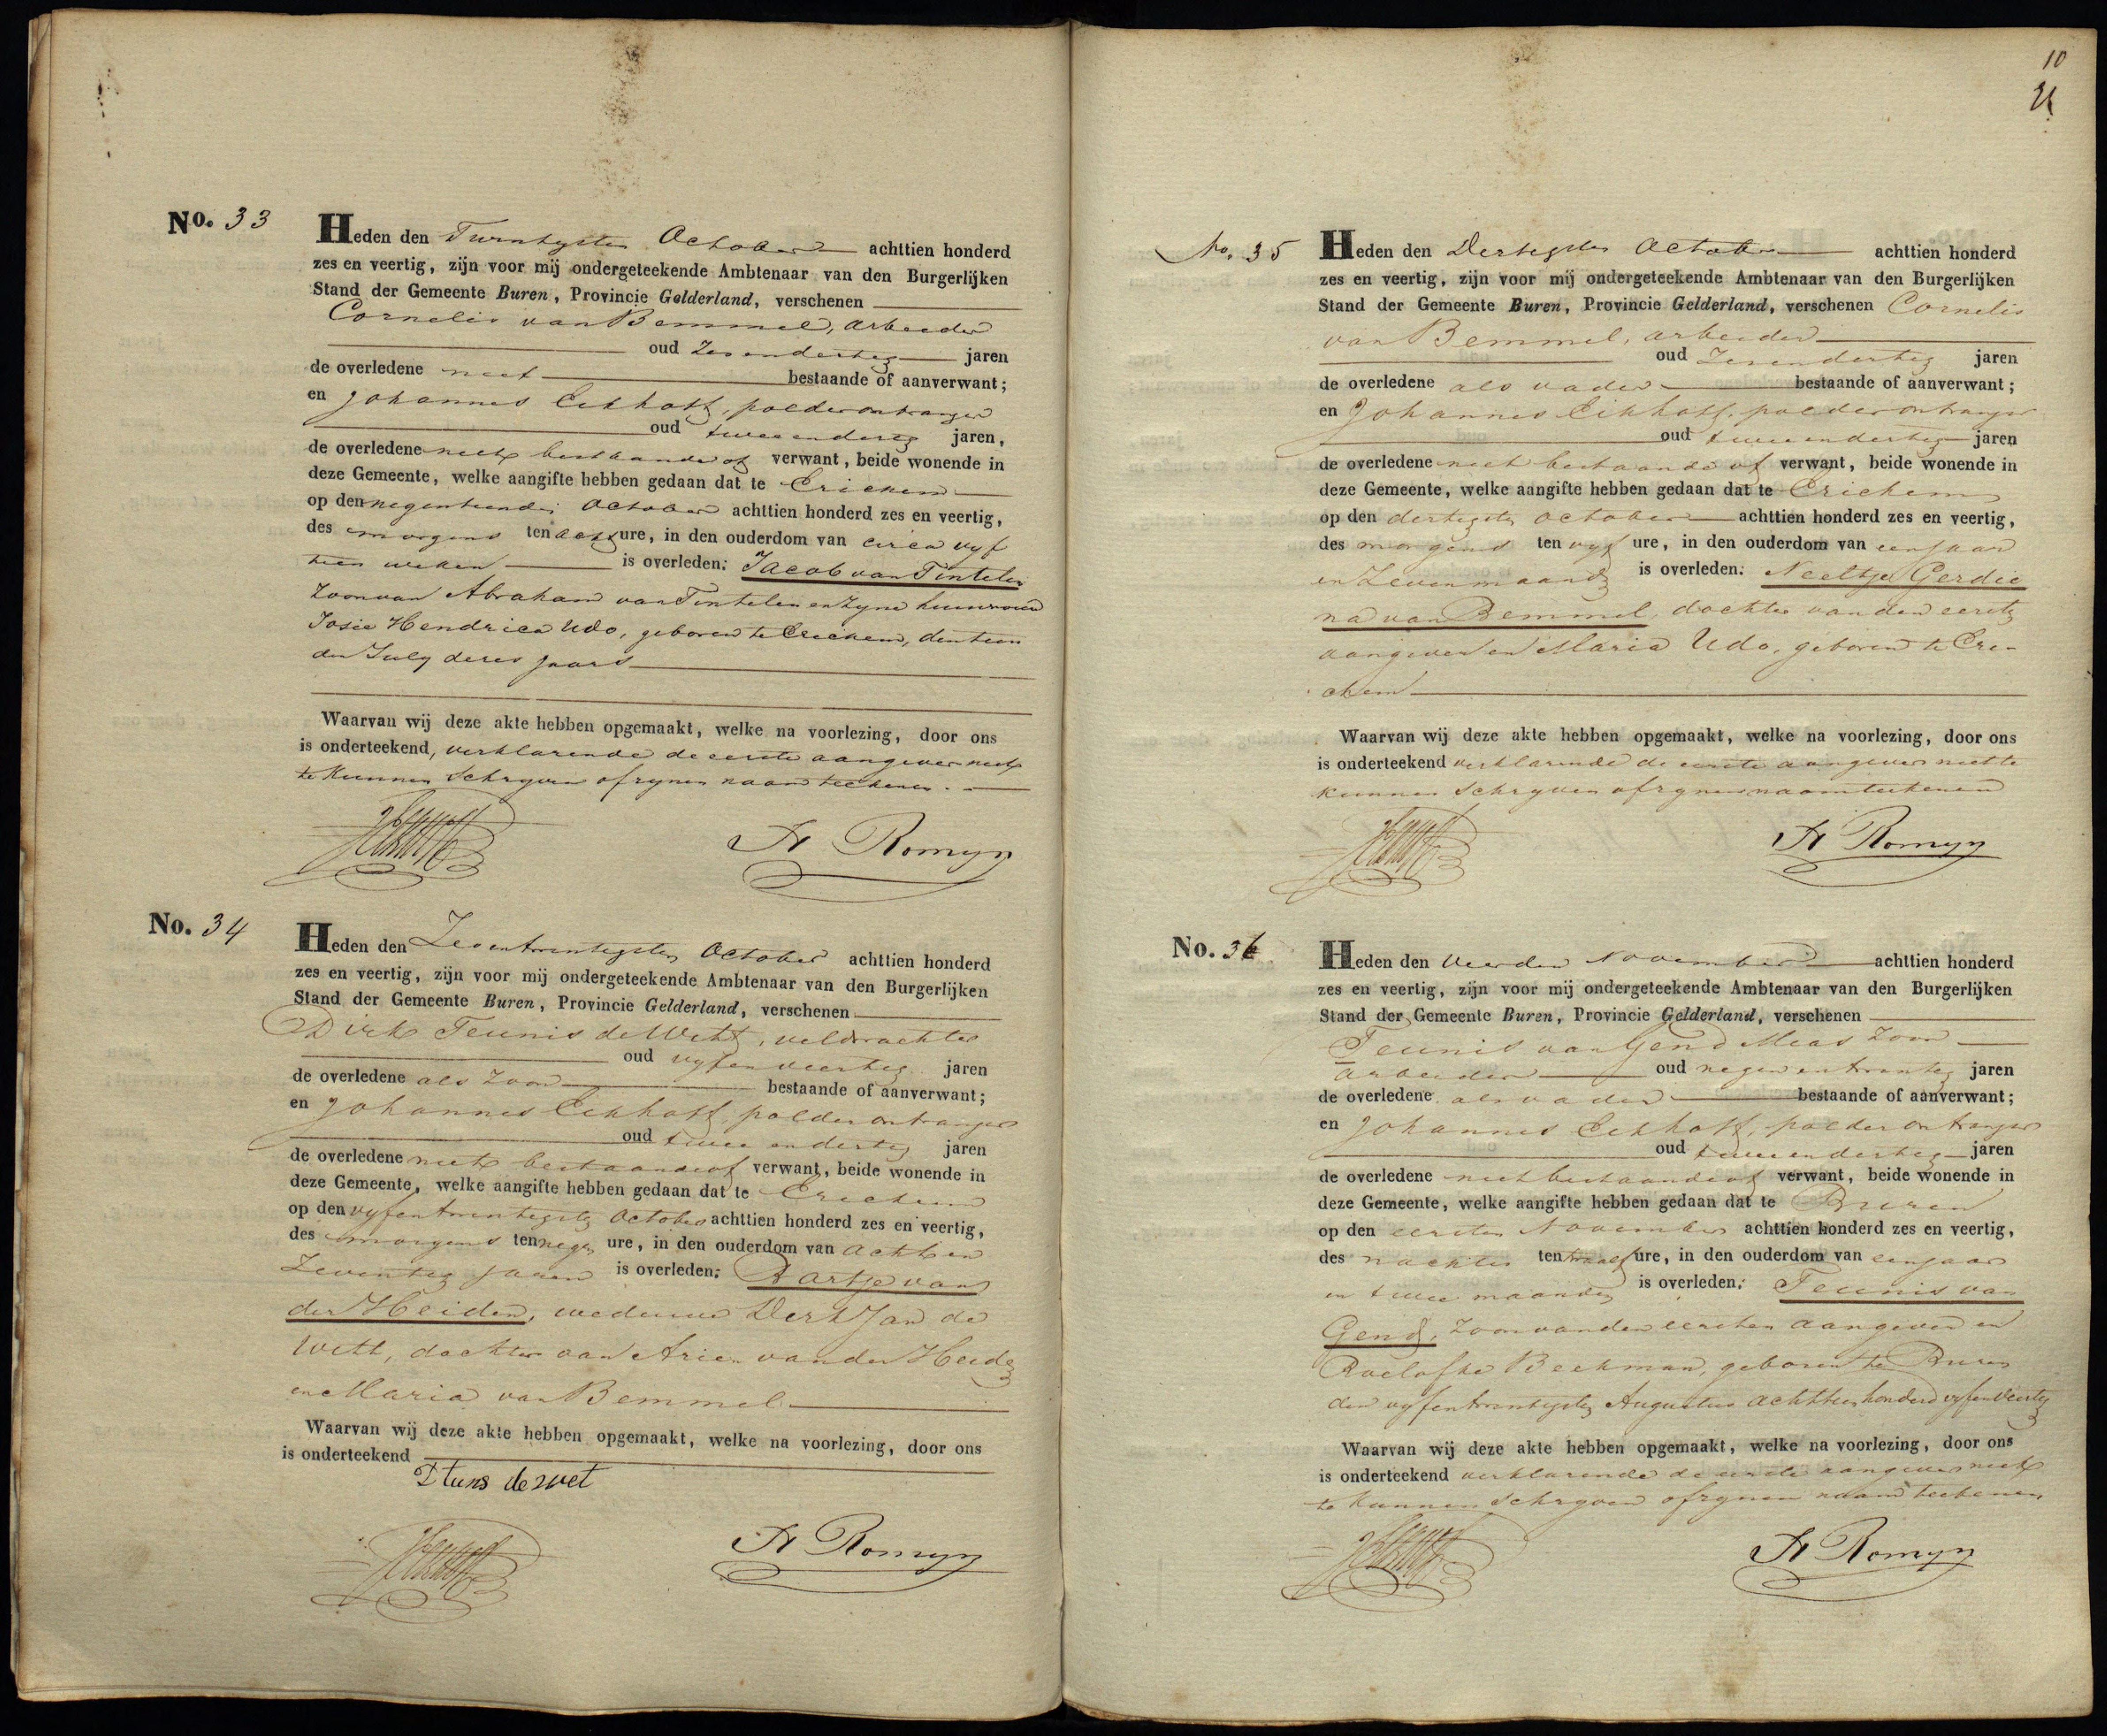 No. 33
Heden den Twintigsten October achttien honderd
zes en veertig, zijn voor mij ondergeteekende Ambtenaar van den Burgerlijken
Stand der Gemeente Buren, Provincie Gelderland, verschenen
Cornelis van Bemmel, arbeider
oud Zesendertig jaren
de overledene niet bestaande of aanverwant;
en Johannes Eekhoff, polderontvanger
oud tweeendertig jaren,
de overledene niet bestaande of verwant, beide wonende in
deze Gemeente, welke aangifte hebben gedaan dat te Erichem
op den negentienden October achttien honderd zes en veertig,
des morgens ten acht ure, in den ouderdom van circa vyf
tien weken is overleden: Jacob van Tintelen
Zoon van Abraham van Tintelen en Zyne huisvrouw
Josie Hendrica Udo, geboren te Erichem, den tien
den July dezes jaars
Waarvan wij deze akte hebben opgemaakt, welke na voorlezing, door ons
is onderteekend, verklarende de eerste aangever niet
te kunnen Schryven of zynen naam teekenen.
A Romyn
No. 34
Heden den Zevenentwintigsten October achttien honderd
zes en veertig, zijn voor mij ondergeteekende Ambtenaar van den Burgerlijken
Stand der Gemeente Buren, Provincie Gelderland, verschenen
Dirk Teunis de Witt, veldwachter
oud vyfenveertig jaren
de overledene als Zoon bestaande of aanverwant;
en Johannes Eekhoff, polderontvanger
oud twee en dertig jaren
de overledene niet bestaande of verwant, beide wonende in
deze Gemeente, welke aangifte hebben gedaan dat te Erichem
op den vyfentwintigsten October achttien honderd zes en veertig,
des morgens ten negen ure, in den ouderdom van acht en
Zeventig jaren is overleden: Aartje van
der Heiden, weduwe Derk Jan de
Witt, dochter van Arie van der Heiden
en Maria van Bemmel
Waarvan wij deze akte hebben opgemaakt, welke na voorlezing, door ons
is onderteekend
D tuns de wet
A Romyn
10
21
No. 35
Heden den Dertigsten October achttien honderd
zes en veertig, zijn voor mij ondergeteekende Ambtenaar van den Burgerlijken
Stand der Gemeente Buren, Provincie Gelderland, verschenen Cornelis
van Bemmel, arbeider
oud Zesendertig jaren
de overledene als vader bestaande of aanverwant;
en Johannes Eekhoff, polderontvanger
oud tweeendertig jaren
de overledene niet bestaande of verwant, beide wonende in
deze Gemeente, welke aangifte hebben gedaan dat te Erichem
op den dertigsten October achttien honderd zes en veertig,
des morgens ten vyf ure, in den ouderdom van een jaar
en Zeven maanden is overleden: Neeltje Gerdie
na van Bemmel, dochter van den eersten
aangever en Maria Udo, geboren te Eri-
chem
Waarvan wij deze akte hebben opgemaakt, welke na voorlezing, door ons
is onderteekend verklarende de eerste aangever niet te
kunnen Schryven of zynen naam teekenen
A Romyn
No. 36
Heden den vierden November achttien honderd
zes en veertig, zijn voor mij ondergeteekende Ambtenaar van den Burgerlijken
Stand der Gemeente Buren, Provincie Gelderland, verschenen
Teunis van Gend Meas Zoon
arbeider oud negenentwintig jaren
de overledene als vader bestaande of aanverwant;
en Johannes Eekhoff, polderontvanger
oud tweeendertig jaren
de overledene niet bestaande of verwant, beide wonende in
deze Gemeente, welke aangifte hebben gedaan dat te Buren
op den eersten November achttien honderd zes en veertig,
des nachts ten twaalf ure, in den ouderdom van een jaar
en twee maanden is overleden: Teunis van
Gend, Zoon van den eersten aangever en
Roelofke Beekman, geboren te Buren
den vyfentwintigsten Augustus achttienhonderd vyfenveertig
Waarvan wij deze akte hebben opgemaakt, welke na voorlezing, door ons
is onderteekend verklarende de eerste aangever niet
te kunnen Schryven of zynen naam teekenen
A Romyn